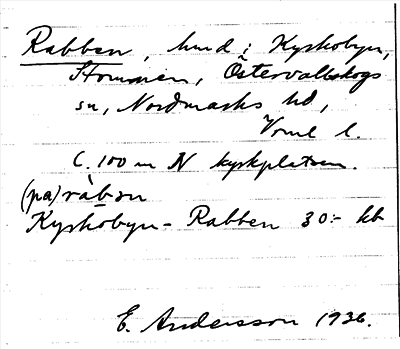 Rabben, hmd i Kyrkobyn,
Strommen, Östervallskogs
sn, Nordmarks hd,
Vrml l.
C. 100 m N kyrkplatsen.
(pa) ràbₔn
Kyrkobyn - Rabben 30:- kb
E. Andersson 1936.